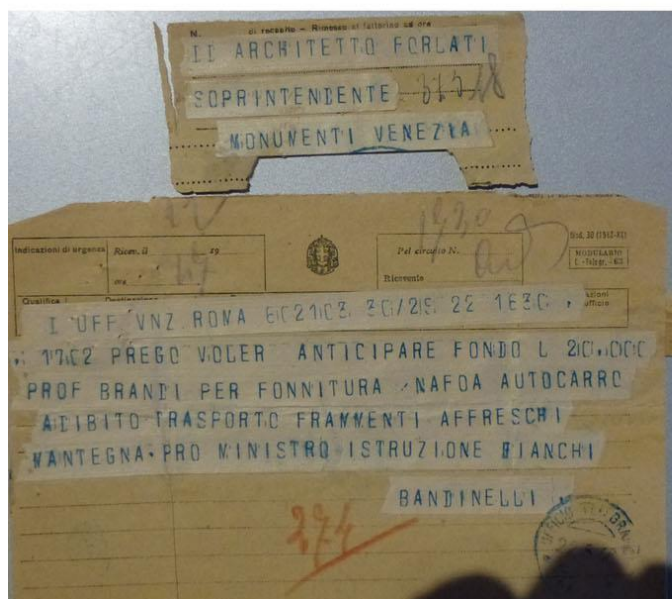 N. di recapito - Rimesso al fattorino ad ore
II ARCHITETTO FORLATI
SOPRINTENDENTE
MONUMENTI VENEZIA
Indicazioni di urgenza
Ricev. il 19
ore
Pel circuito N.
Ricevente
Mod. 30
MODULARIO
Qualifica
I UFF VNZ ROMA 30/29 22 1630
1702 PREGO VOLER ANTICIPARE FONDO L 20.000
PROF BRANDI PER FONNITURA NAFOA AUTOCARRO
ADIBITO TRASPORTO FRAMMENTI AFFRESCHI
MANTEGNA PRO MINISTRO ISTRUZIONE BIANCHI
BANDINELLI
274